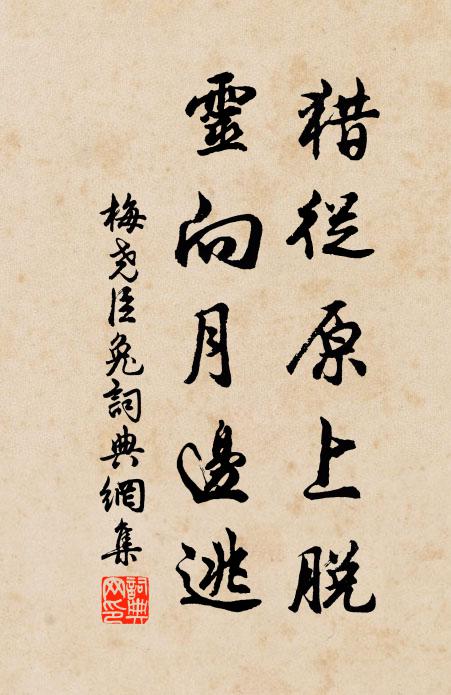 猎從原上脫
靈向月邊逃
梅堯臣兔詞典網集
詞典网印